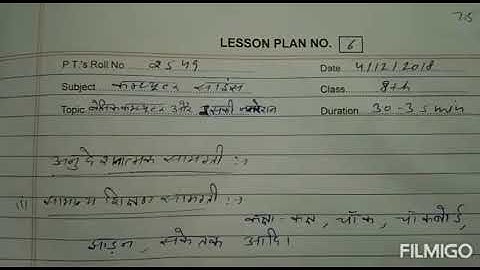 LESSON PLAN NO. 6
P.T.'s Roll No. 2549 Date 4/12/2018
Subject कम्प्यूटर साइंस Class 8th
Topic बेसिक कम्प्यूटर और इसकी Duration 30-35 min
अनुदेशनात्मक सामग्री :-
(i) सामान्य शिक्षण सामग्री :-
कक्षा-कक्ष, चॉक, चॉकबोर्ड,
झाड़न, संकेतक आदि।
FILMIGO